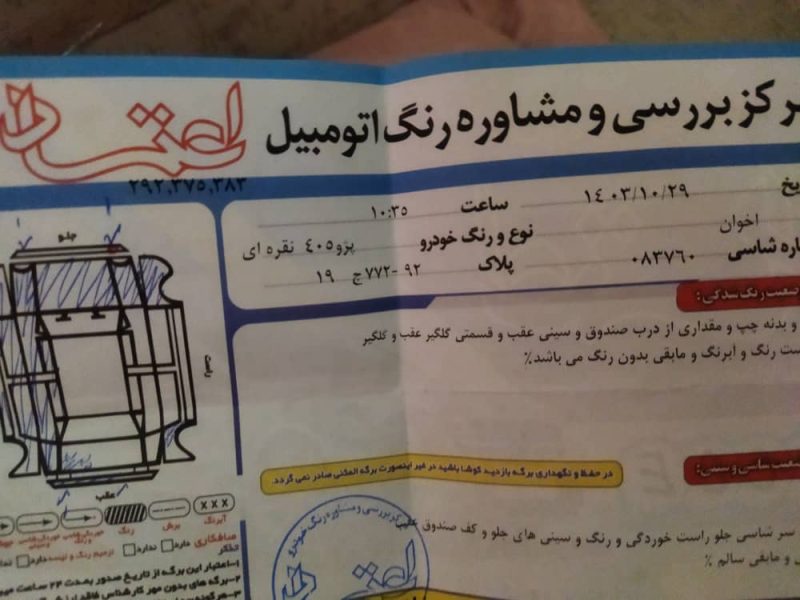 مرکز بررسی و مشاوره رنگ اتومبیل
اعتماد
۲۹۲,۳۷۵,۳۸۳
۱۴۰۳/۱۰/۲۹ ساعت ۱۰:۳۵
اخوان نوع و رنگ خودرو پژو ۴۰۵ نقره ای
شاسی ۰۸۳۷۶۰ پلاک ۹۲ -۷۷۲ج ۱۹
وضعیت رنگ شدگی :
و بدنه چپ و مقداری از درب صندوق و سینی عقب و قسمتی گلگیر عقب و گلگیر
است رنگ و آبرنگ و مابقی بدون رنگ می باشد٪
جلو
راست
عقب
در حفظ و نگهداری برگه بازدید کوشا باشید در غیر اینصورت برگه المثنی صادر نمی گردد.
وضعیت شاسی و سینی:
سر شاسی جلو راست خوردگی و رنگ و سینی های جلو و کف صندوق عقب
و مابقی سالم ٪
XXX
آبرنگ
برش
رنگ
صافکاری دارد ندارد
ترمیم رنگ و لیسه دارد
مرکز بررسی و مشاوره رنگ خودرو
۱-اعتبار این برگه از تاریخ صدور بمدت ۲۴ ساعت
۲-برگه های بدون مهر کارشناس فاقد
۳-هرگونه